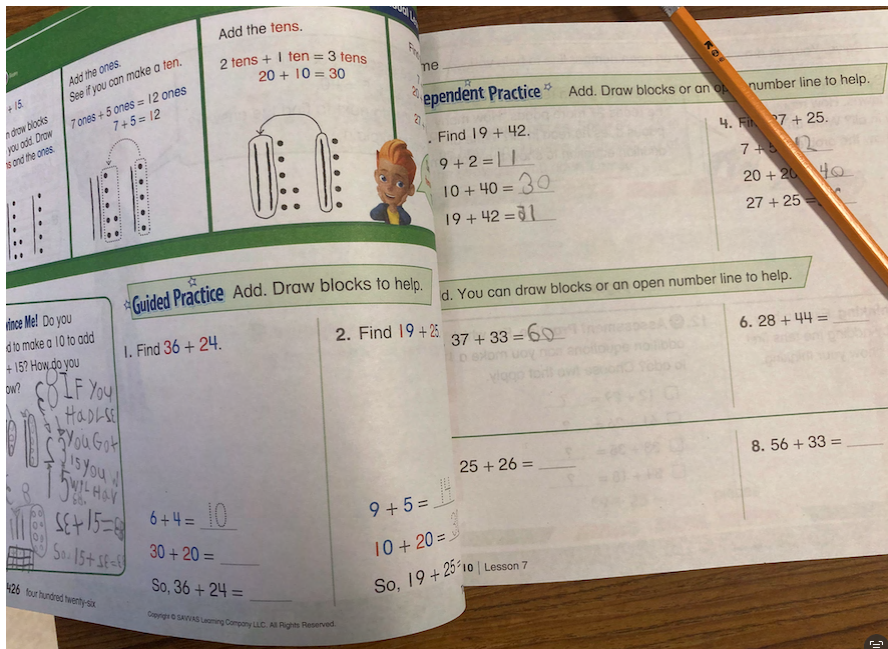 + 15.
draw blocks
you add. Draw
and the ones.
Add the ones.
See if you can make a ten.
7 ones + 5 ones = 12 ones
7 + 5 = 12
Add the tens.
2 tens + 1 ten = 3 tens
20 + 10 = 30
Me! Do you
to make a 10 to add
+ 15? How do you
IF YOU
YOU GOT
15 YOU
Guided Practice Add. Draw blocks to help.
1. Find 36 + 24.
6 + 4 = 10
30 + 20 = ___
So, 36 + 24 = ___
2. Find 19 + 25
9 + 5 = 14
10 + 20 =
So, 19 + 25 =
426 four hundred twenty-six
Copyright © SAVVAS Learning Company LLC. All Rights Reserved.
Practice Add. Draw blocks or an number line to help.
. Find 19 + 42.
9 + 2 = 11
10 + 40 = 30
19 + 42 =
4. 37 + 25.
7 + 12
20 + 20 40
27 + 25 =
d. You can draw blocks or an open number line to help.
37 + 33 = 60
6. 28 + 44 = ___
25 + 26 = ___
8. 56 + 33 = ___
10 | Lesson 7